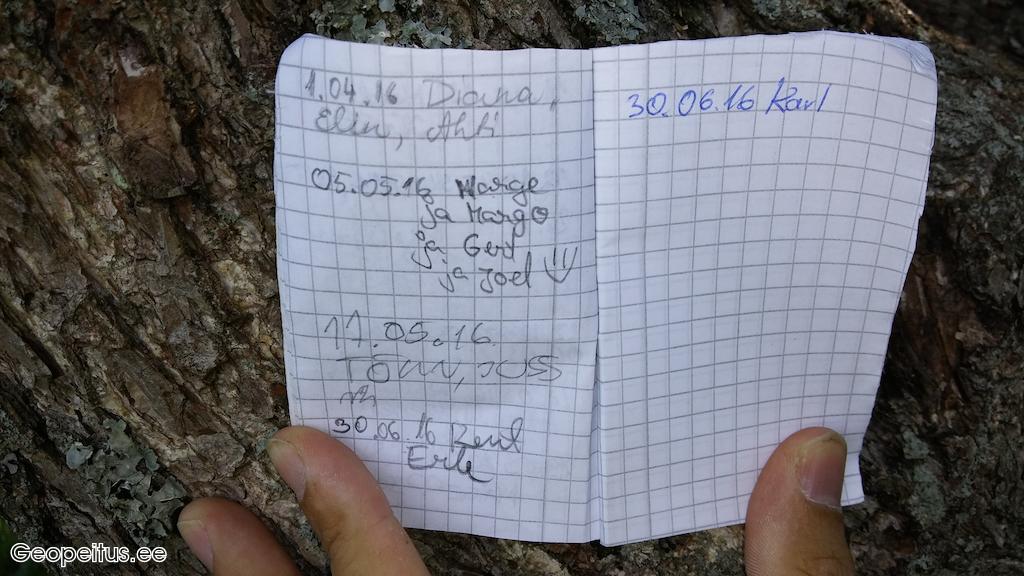 1.04.16 Diana,
Elin, Ahti
05.05.16 Marge
ja Margo
ja Gert
ja Joel
11.05.16
30.06.16
Erle
30.06.16 Karl
Geopeitus.ee